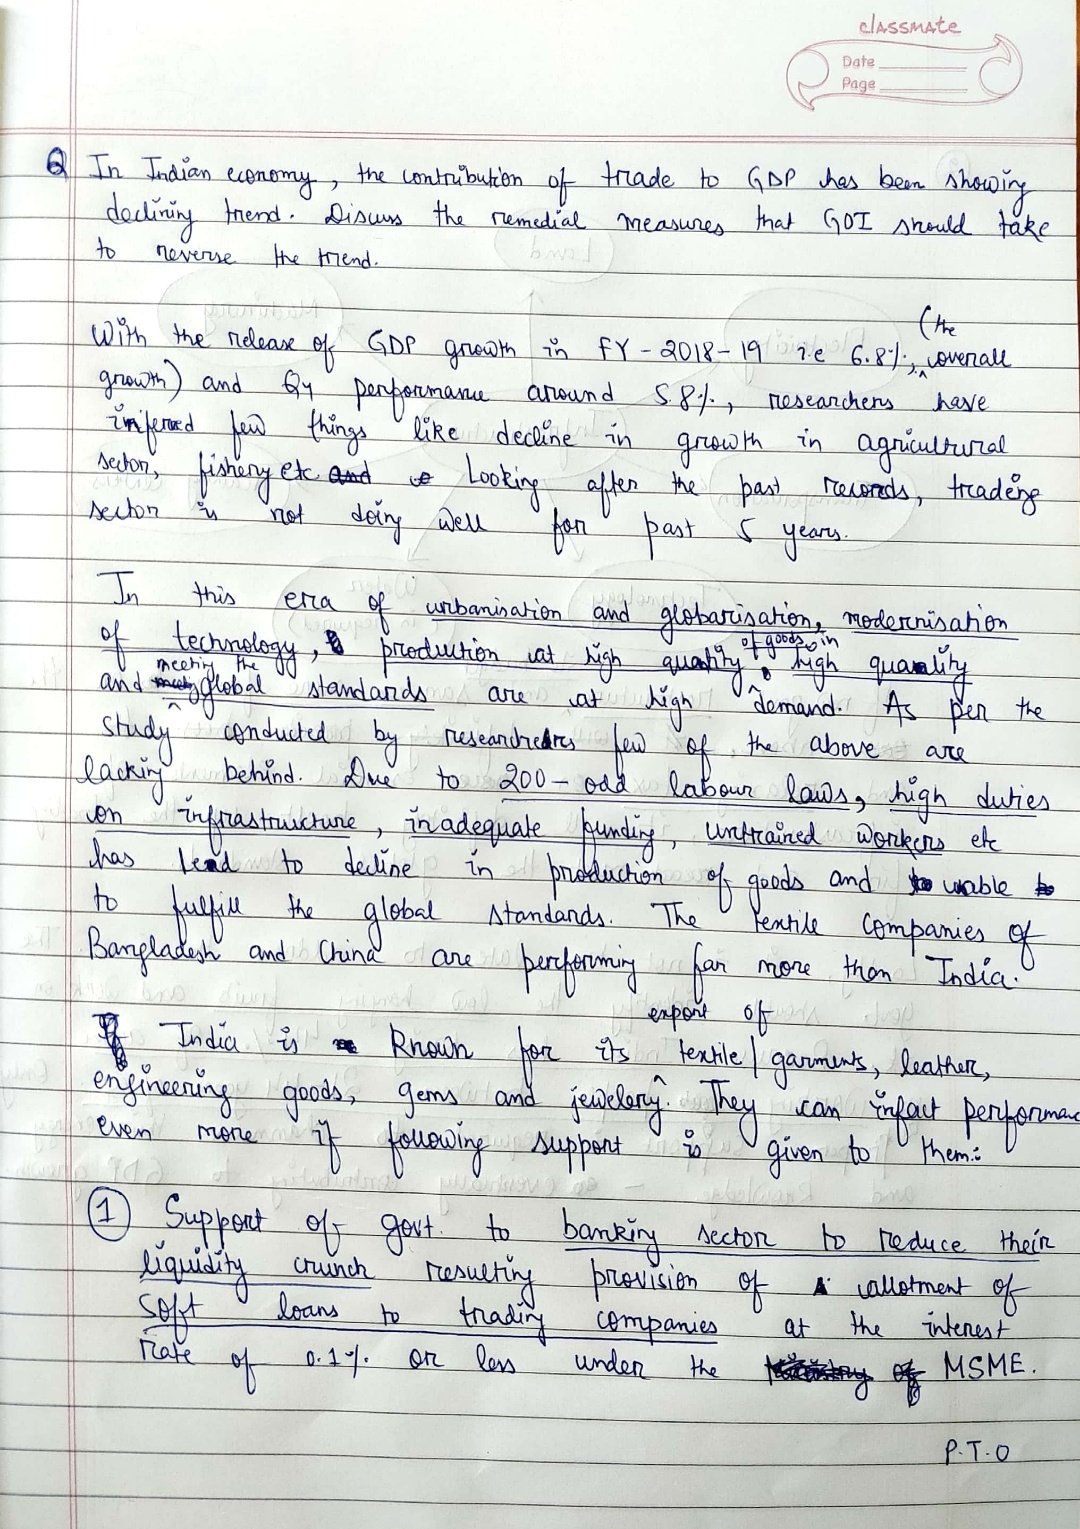 classmate
Date
Page
Q In Indian economy, the contribution of trade to GDP has been showing
declining trend. Discuss the remedial measures that GOI should take
to reverse the trend.
(the
With the release of GDP growth in FY-2018-19 i.e 6.8%, overall
growth) and Q4 performance around 5.8%, researchers have
inferred few things like decline in growth in agricultural
sector, fishery etc. and Looking after the past records, trading
sector is not doing well for past 5 years.
In this era of urbanisation and globarisation, modernisation
of technology, production at high quantity of goods, in high quality
and meeting the global standards are at high demand. As per the
study conducted by researchers few of the above are
lacking behind. Due to 200-odd labour laws, high duties
on infrastructure, inadequate funding, untrained workers etc
has lead to decline in production of goods and unable
to fulfill the global standards. The textile companies of
Bangladesh and China are performing far more than India.
export of
India is known for its textile/garments, leather,
engineering goods, gems and jewelery. They can infact performance
even more if following support is given to them:
1 Support of govt. to banking sector to reduce their
liquidity crunch resulting provision of allotment of
soft loans to trading companies at the interest
rate of 0.1% or less under the MSME.
P.T.O